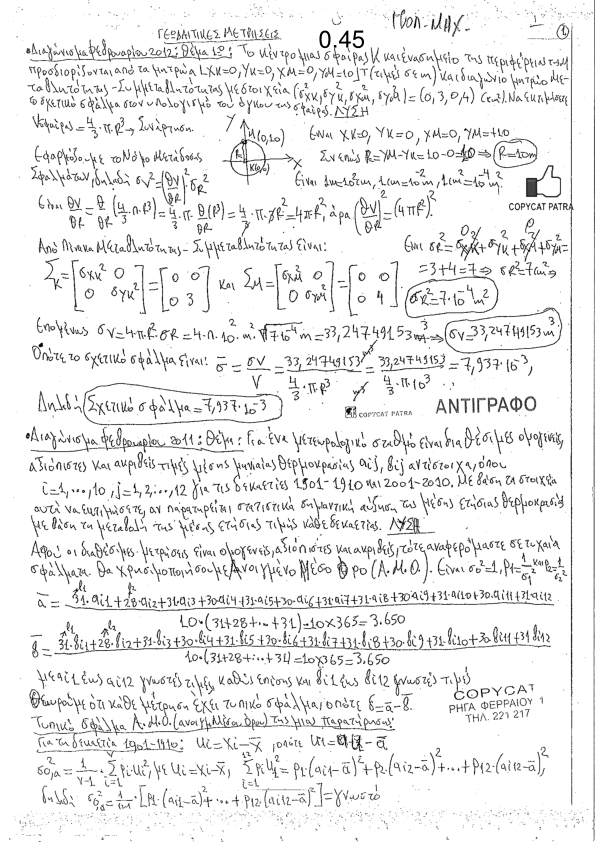 Πολ.-Μηχ.
1
ΓΕΩΔΑΙΤΙΚΕΣ ΜΕΤΡΗΣΕΙΣ
0.45
1
•Διαγώνισμα Φεβρουαρίου 2012: Θέμα 1ο: Το κέντρο μιας σφαίρας Κ και ένα σημείο της περιφέρειας της Μ
προσδιορίζονται από τα μητρώα [XK=0, YK=0, XM=0, YM=10]ᵀ (τιμές σε m) και διαγώνιο μητρώο Με-
ταβλητότητας-Συμμεταβλητότητας με στοιχεία (σ²XK, σ²YK, σ²XM, σ²YM) = (0, 3, 0, 4) (cm²). Να εκτιμήσετε
το σχετικό σφάλμα στον υπολογισμό του όγκου της σφαίρας. ΛΥΣΗ
Vσφαίρας = 4/3 · π · R³ → Συνάρτηση.
Y
M(0,10)
R
K(0,0)
X
Είναι XK=0, YK=0, XM=0, YM=+10
Συνεπώς R=YM-YK=10-0=10 ⇒ R=10m
Εφαρμόζουμε το Νόμο Μετάδοσης
Σφαλμάτων, δηλαδή σV² = (∂V/∂R)² · σR²
Είναι 1m=10²cm, 1cm=10⁻²m, 1cm²=10⁻⁴m².
COPYCAT PATRA
Είναι ∂V/∂R = ∂/∂R (4/3 · π · R³) = 4/3 · π · ∂/∂R (R³) = 4/3 · π · 3R² = 4πR², άρα (∂V/∂R)² = (4πR²)².
Από Πίνακα Μεταβλητότητας-Συμμεταβλητότητας είναι:
Είναι σR² = σ²XK + σ²YK + σ²XM + σ²YM =
= 3+4 = 7 ⇒ σR² = 7cm² ⇒
ΣK = [σXK² 0 0 σYK²] = [0 0 0 3] και ΣM = [σXM² 0 0 σYM²] = [0 0 0 4]
σR² = 7·10⁻⁴m²
Επομένως σV = 4·π·R²·σR = 4·π·10²·m²·√7·10⁻⁴ m = 33,24749153 m³ ⇒ σV = 33,24749153 m³
Οπότε το σχετικό σφάλμα είναι: σ̄ = σV/V = 33,24749153 m³ / 4/3 · π · R³ m³ = 33,24749153 / 4/3 · π · 10³ = 7,937·10⁻³,
Δηλαδή Σχετικό σφάλμα = 7,937·10⁻³
COPYCAT PATRA
ΑΝΤΙΓΡΑΦΟ
•Διαγώνισμα Φεβρουαρίου 2011: Θέμα: Για ένα μετεωρολογικό σταθμό είναι διαθέσιμες ομογενείς,
αξιόπιστες και ακριβείς τιμές μέσης μηνιαίας θερμοκρασίας aij, bij αντίστοιχα, όπου
i=1,...,10, j=1,2,...,12 για τις δεκαετίες 1901-1910 και 2001-2010. Με βάση τα στοιχεία
αυτά να εκτιμήσετε, αν παρατηρείται στατιστικά σημαντική αύξηση της μέσης ετήσιας θερμοκρασίας
με βάση τη μεταβολή της μέσης ετήσιας τιμής κάθε δεκαετίας. ΛΥΣΗ
Αφού οι διαθέσιμες μετρήσεις είναι ομογενείς, αξιόπιστες και ακριβείς, τότε αναφερόμαστε σε τυχαία
σφάλματα. Θα χρησιμοποιήσουμε Ανοιγμένο Μέσο Όρο (Α.Μ.Ο.). Είναι σ0²=1, P1=1/σ1² και P2=1/σ2²
ā = 31·ai1+28·ai2+31·ai3+30·ai4+31·ai5+30·ai6+31·ai7+31·ai8+30·ai9+31·ai10+30·ai11+31·ai12
10·(31+28+...+31)=10×365=3.650
b̄ = 31·bi1+28·bi2+31·bi3+30·bi4+31·bi5+30·bi6+31·bi7+31·bi8+30·bi9+31·bi10+30·bi11+31·bi12
10·(31+28+...+31)=10×365=3.650
με ai1 έως ai12 γνωστές τιμές, καθώς επίσης και bi1 έως bi12 γνωστές τιμές
Θεωρούμε ότι κάθε μέτρηση έχει τυπικό σφάλμα, οπότε δ=ā-b̄.
COPYCAT
ΡΗΓΑ ΦΕΡΡΑΙΟΥ 1
ΤΗΛ. 221 217
Τυπικό σφάλμα Α.Μ.Ο. (ανοιγμ. Μέσου όρου) της μιας παρατήρησης:
Για τη δεκαετία 1901-1910: Ui=Xi-X̄, οπότε Ui=ai1-ā
σ²0,a = 1/(ν-1) · Σ Pi·Ui², με Ui=Xi-X̄, Σ PiUi² = P1·(ai1-ā)²+P2·(ai2-ā)²+...+P12·(ai12-ā)²,
δηλαδή σ²0,a = 1/(ν-1) · [P1·(ai1-ā)²+...+P12·(ai12-ā)²] = γνωστό